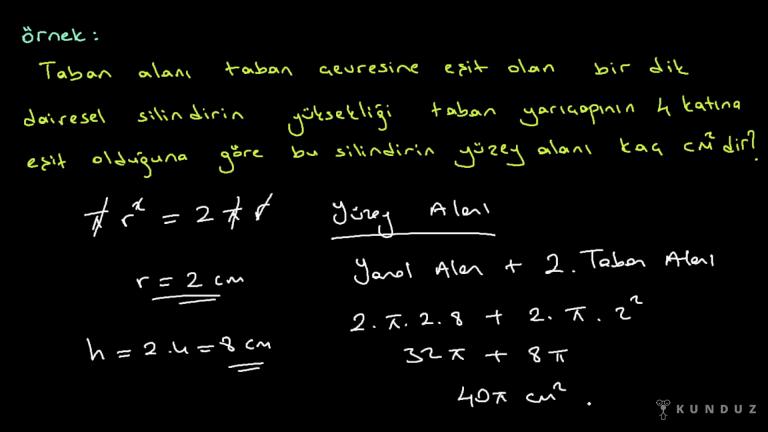 örnek:
Taban alanı taban çevresine eşit olan bir dik
dairesel silindirin yüksekliği taban yarıçapının 4 katına
eşit olduğuna göre bu silindirin yüzey alanı kaç cm² dir?
πr² = 2πr
r = 2 cm
h = 2.4 = 8 cm
Yüzey Alanı
Yanal Alan + 2. Taban Alanı
2.π.2.8 + 2.π.2²
32π + 8π
40π cm².
KUNDUZ